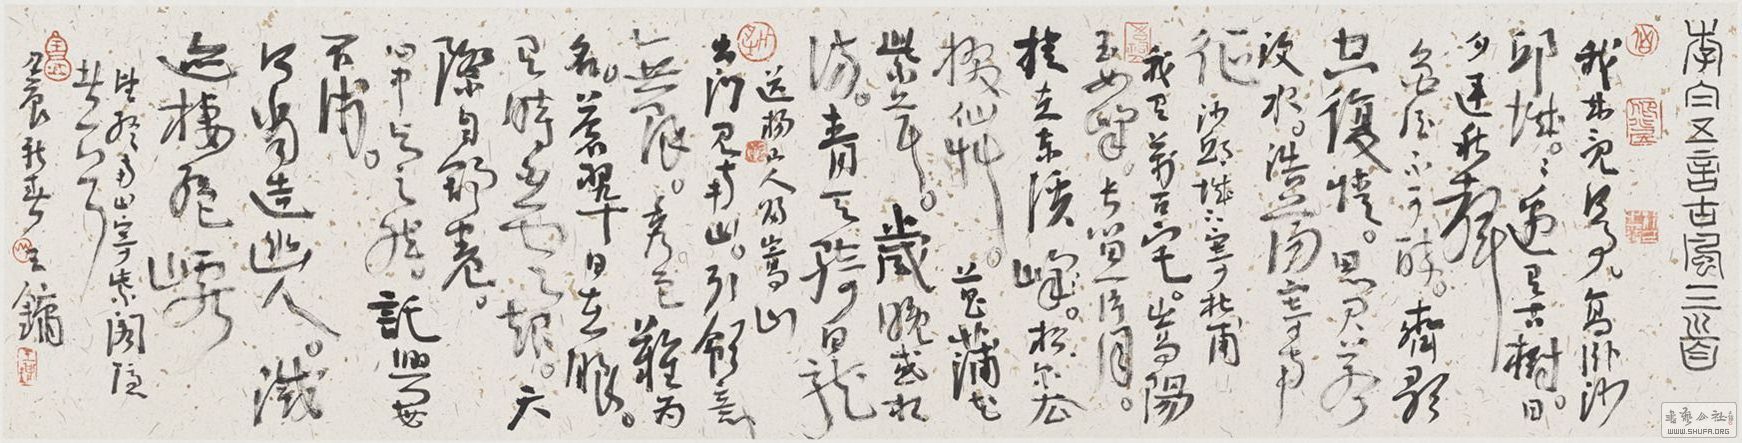 李白五言古風三首
我来竟何事。高卧沙
邱城。〻邊有古樹。日
夕連秋聲
魯酒不可醉。齊歌
空復情。思君若
汶水。浩蕩寄南
征 沙邱城下寄杜甫
我有萬古宅。嵩陽
玉女峰。長留一片月。
挂在東溪峰。松尔去
掇仙艸。菖蒲花
紫茸。歲晚或相
訪。青天騎白龍
送楊山人歸嵩山
出門見南山。引領意
無限。秀色難為
名。蒼翠日在眼。
有時白雲起。天
際自舒卷。
心中與之然。託興每
不淺。
何當造幽人。滅
迹棲絕巘
望終南山寄紫閣隱
者一首
壬辰新春 王鏞
書藝公社
WWW.SHUFA.ORG